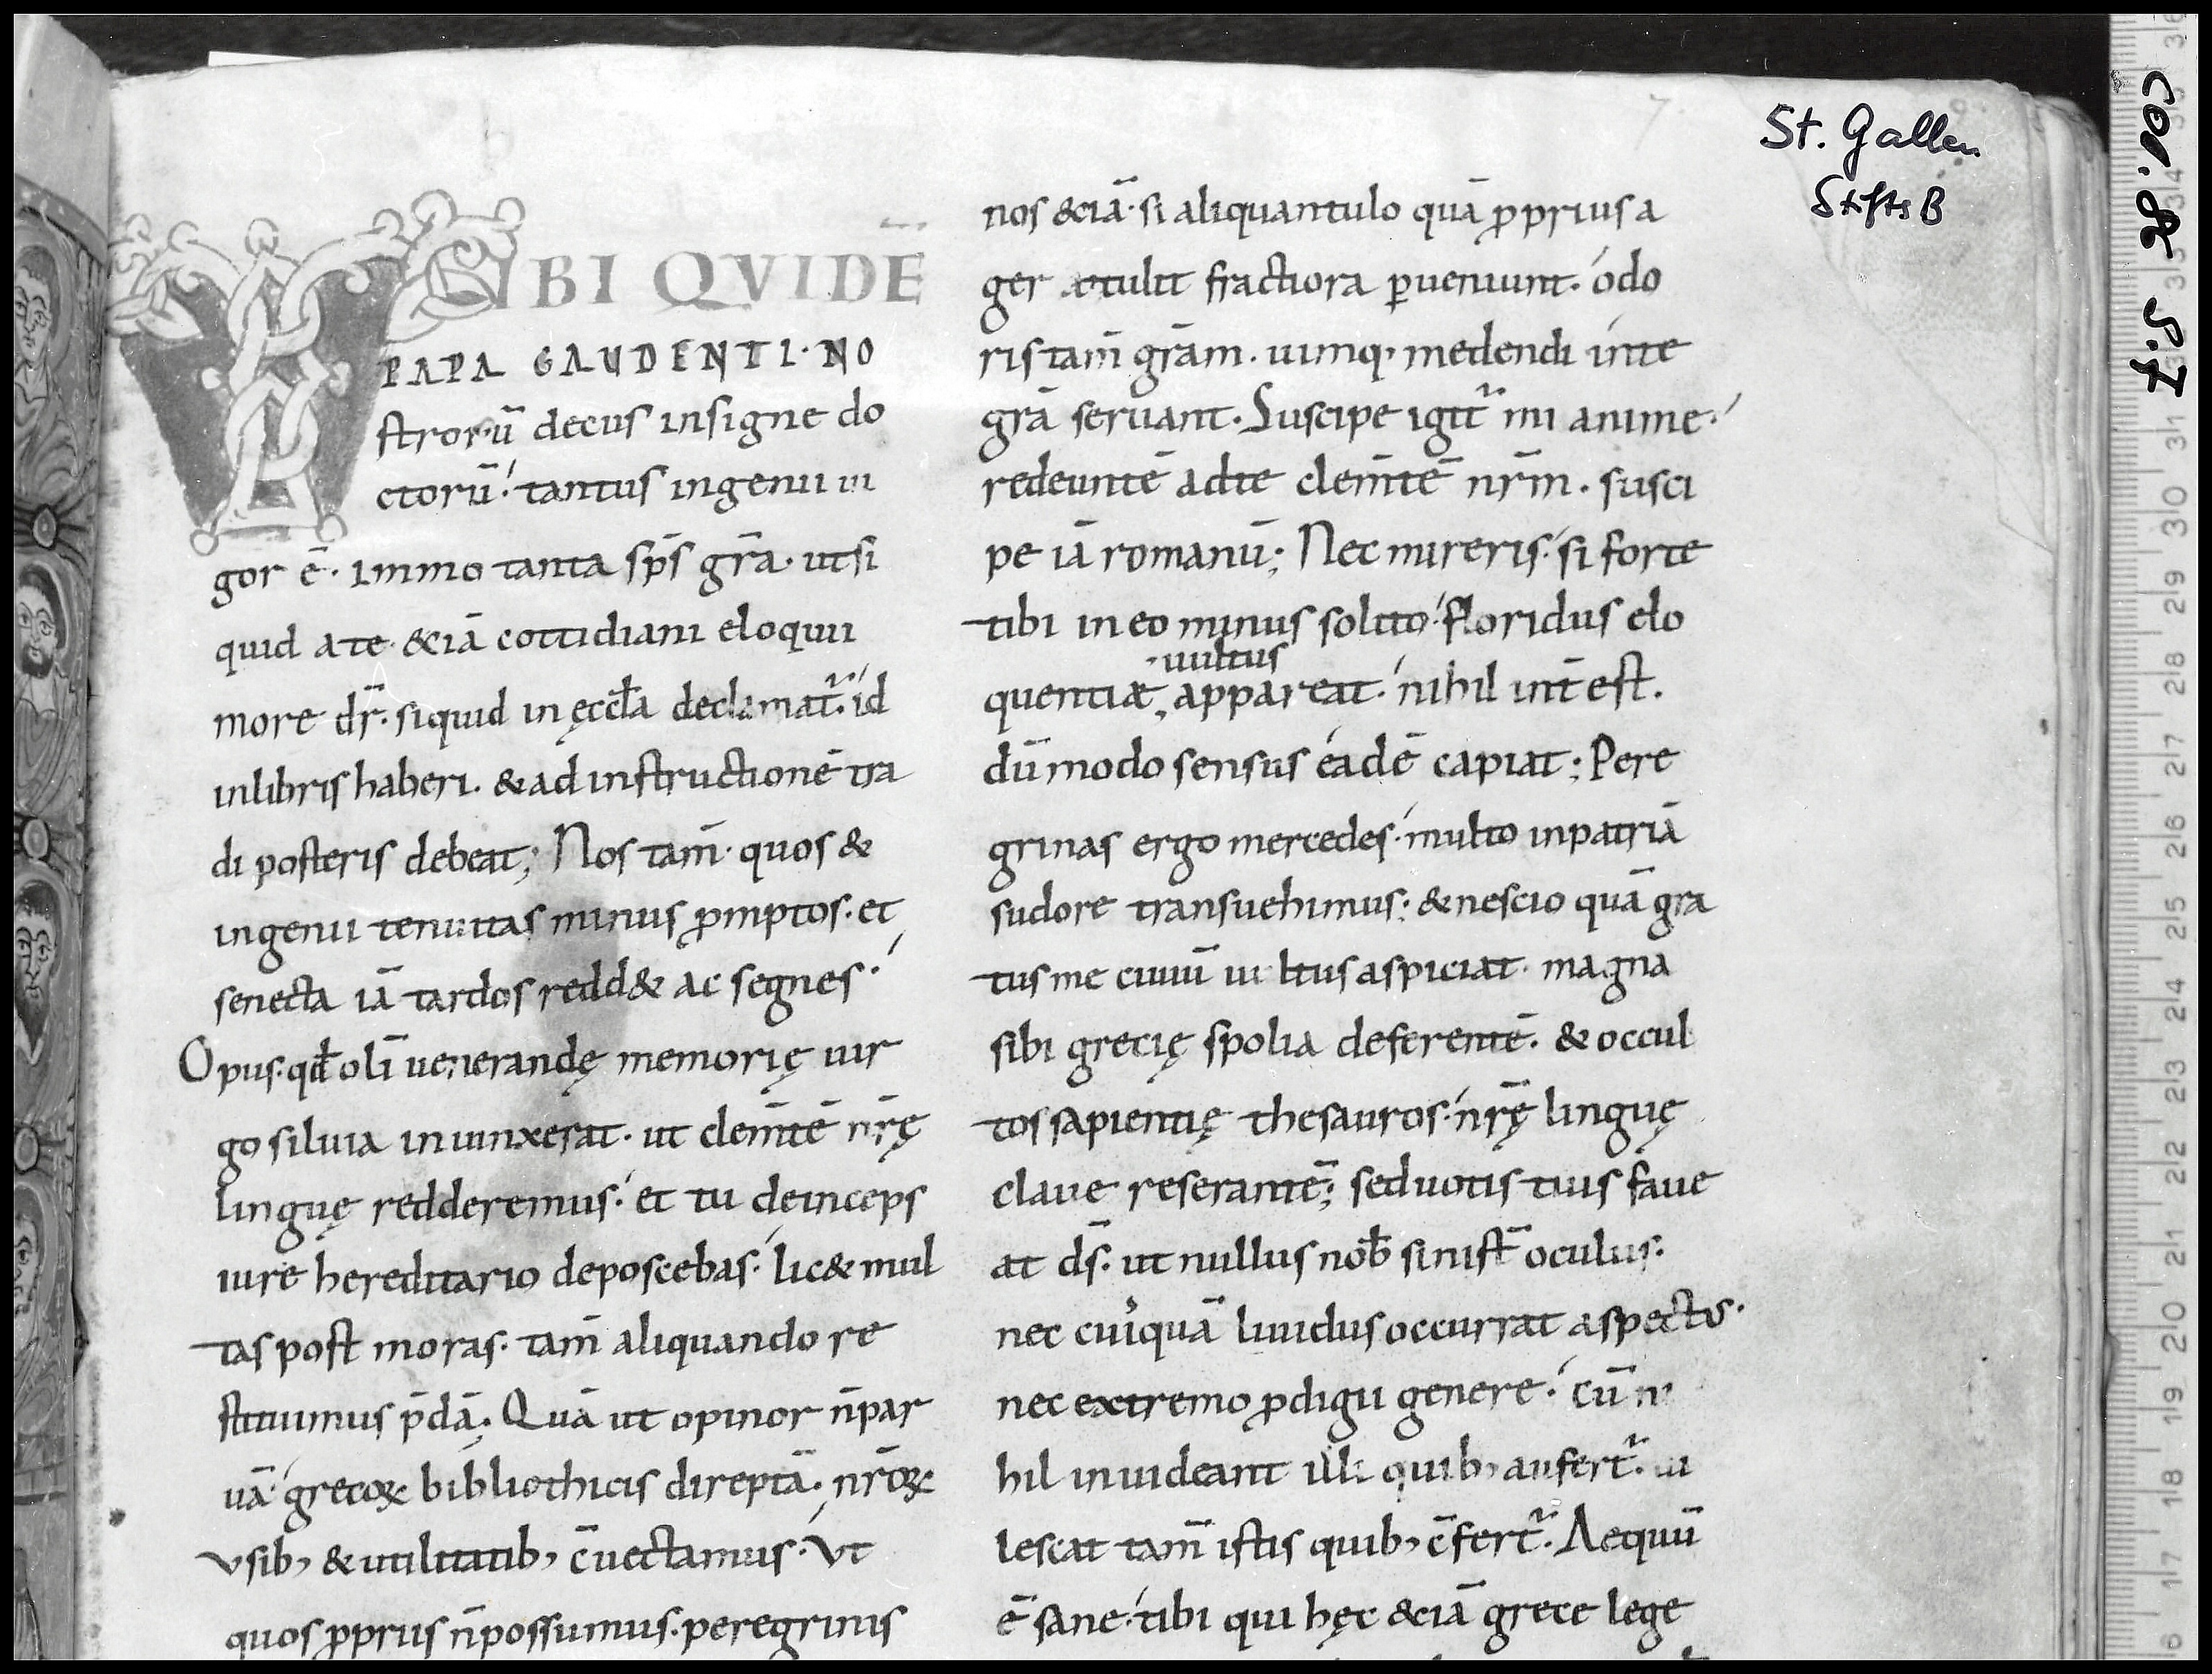 TIBI QVIDĒ
PAPA GAUDENTI·NO
ſtrorū decus inſigne do
ctorū· tantus ingenii ui
gor ē· immo tanta sp̄s gr̄a· utſi
quid ate &iā cottidiani eloquii
more dr̄· ſiquid in ęccl̄a declamat᷑· id
inlibris haberi· & ad inſtructionē tra
di poſteris debeat; Nos tam̄ quos &
ingenii tenuitas minus ꝓmptos· et
ſenecta iā tardos redd& ac ſegnes·
Opus· qđ olī uenerandę memorię uir
go ſiluia iniunxerat· ut clem̄tē nr̄ę
linguę redderemus· et tu deinceps
iure hereditario depoſcebas· lic& mul
tas poſt moras· tam̄ aliquando re
ſtituimus p̄dā· Quā ut opinor n̄ par
uā grecoꝝ bibliothicis direptā· nr̄oꝝ
vſib; & utilitatib; c̄uectamus· Vt
quos ꝓpriis n̄ poſſumus· peregrinis
nos &iā· ſi aliquantulo quā ꝓprius a
ger attulit fractiora ꝑueniunt· odo
ris tam̄ gr̄am· uimq; medendi inte
grā ſeruant· Suſcipe igit᷑ mi anime·
redeuntē adte clem̄tē nr̄m· ſuſci
pe iā romanū; Nec mireris· ſi forte
tibi in eo minus ſolito· floridus elo
uultus
quentiæ appareat· nihil int̄eſt·
dūmodo ſenſus eadē capiat; Pere
grinas ergo mercedes· multo inpatriā
ſudore transuehimus; & neſcio quā gra
tus me ciuiū uultus aſpiciat· magna
ſibi grecię ſpolia deferentē· & occul
tos ſapientię theſauros· nr̄ę linguę
claue reſerantē; ſed uotis tuis faue
at dſ̄· ut nullus nob̄ ſiniſt̄ oculus·
nec cuiquā liuidus occurrat aſpectus·
nec extremo ꝓdigii genere· cū ni
hil inuideant illi quib; aufert᷑· ui
leſcat tam̄ iſtis quib; c̄fert᷑· Aequū
ē ſane· tibi qui hęc &iā grece lege
St. Gallen
Stifts B
COD. 86 S. 7
31
30
29
28
27
26
25
24
23
22
21
20
19
18
17